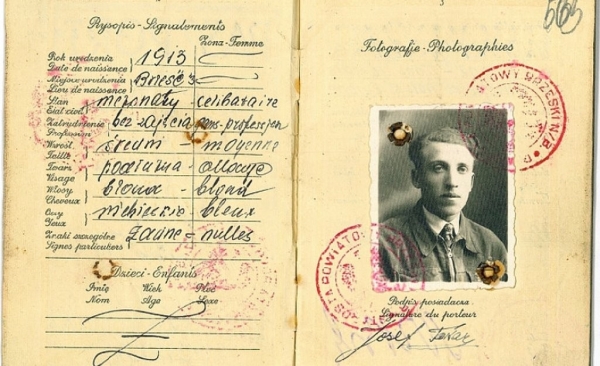 Rysopis - Signalements
Żona - Femme
Rok urodzenia
Date de naissance
1913
Miejsce urodzenia
Lieu de naissance
Brześć
Stan
Etat civil
nieżonaty celibataire
Zatrudnienie
Profession
bez zajęcia sans profession
Wzrost
Taille
średni moyenne
Twarz
Visage
podłużna
Włosy
Cheveux
blond blond
Oczy
Yeux
niebieskie bleux
Znaki szczególne
Signes particuliers
żadne = nulles
Dzieci - Enfants
Imię Wiek Płeć
Nom Age Sexe
Fotografje - Photographies
BRZESKI N/B.
STAROSTA POWIATOWY
Podpis posiadacza
Signature du porteur
Josef